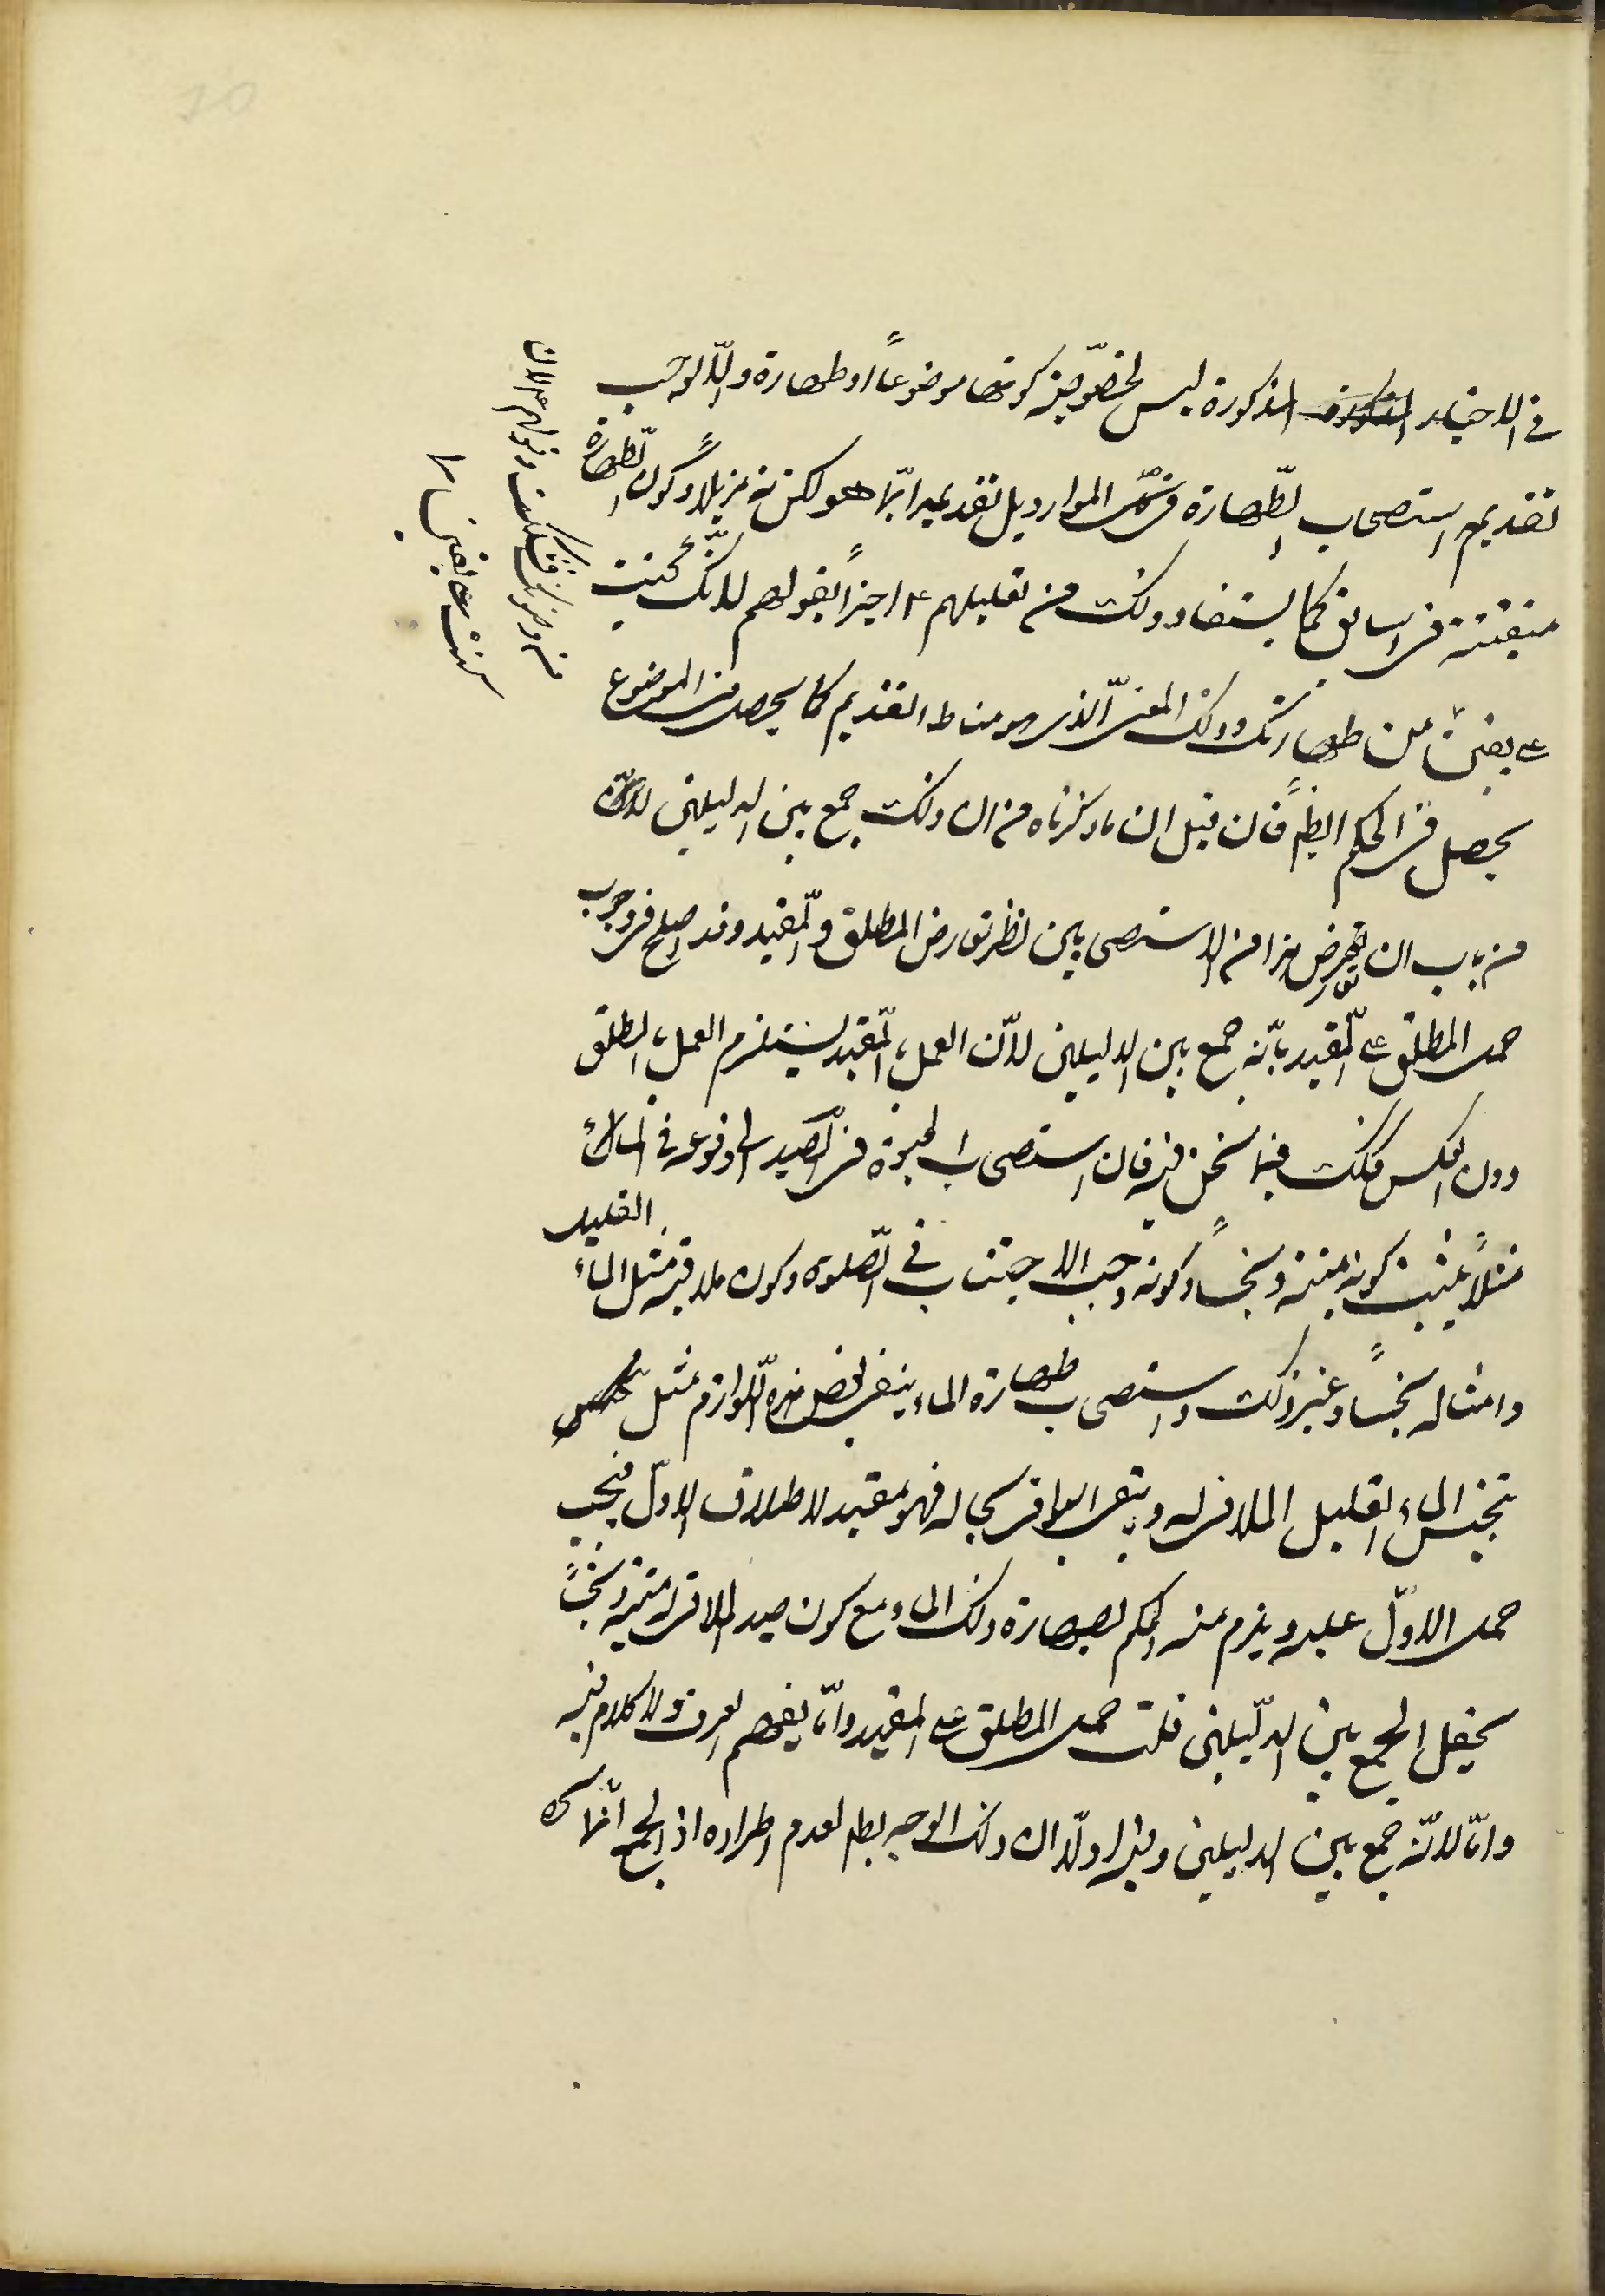 في الاخبار المذكورة ليس لخصوصية كونها موضوعاً او طهارة والّا لوجب
تقديم استصحاب الطّهارة في كلّ الموارد بل تقديمه انّما هو لكونه مزيلاً وكون الطّهارة
متيقنة في السابق كما يستفاد ذلك من تعليلهم ع اخيراً بقولهم لانّك كنت
على يقين من طهارتك وذلك المعنى الّذي هو مناط التقديم كما يحصل في الموضوع
يحصل في الحكم ايضاً فان قيل ان ما ذكرناه من ان ذلك جمع بين الدليلين لانّ
من باب ان تعارض هذا من الاستصحابين نظير تعارض المطلق والمقيد وقد اصطلح في وجوب
حمل المطلق على المقيد بانّه جمع بين الدليلين لانّ العمل بالمقيد يستلزم العمل بالمطلق
دون العكس فكذلك فيما نحن فيه فان استصحاب الحيوة في الصّيد الى وقوعه في الماء
مثلاً يثبت كونه ميتة ونجساً وكونه واجب الاجتناب في الصّلوة وكون ملاقيه مثل الماء القليل
وامثاله نجساً وغير ذلك واستصحاب طهارة الماء ينفي بعض هذه اللّوازم مثل
تنجس الماء القليل الملاقي له ويبقى البواقي بحاله فهو مقيد لاطلاق الاوّل فيجب
حمل الاوّل عليه ويلزم منه الحكم بطهارة ذلك الماء مع كون صيد الملاقي له ميتة ونجساً
يحصل الجمع بين الدليلين قلت حمل المطلق على المقيد امّا بفهم العرف ولا كلام فيه
وامّا لانّه جمع بين الدليلين وفيه اولاً ان ذلك الوجه بطم لعدم اطراده اذ الجمع انّما